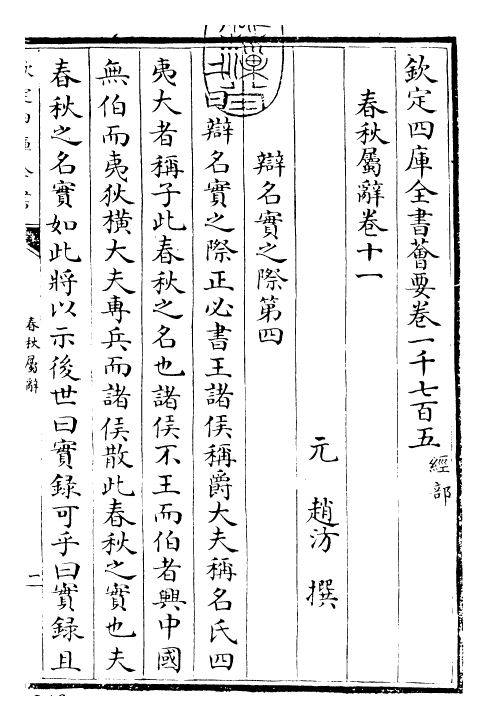 欽定四庫全書薈要卷一千七百五 經部
春秋屬辭卷十一
元 趙汸 撰
辯名實之際第四
曰辯名實之際正必書王諸侯稱爵大夫稱名氏四
夷大者稱子此春秋之名也諸侯不王而伯者興中國
無伯而夷狄橫大夫專兵而諸侯散此春秋之實也夫
春秋之名實如此將以示後世曰實録可乎曰實録且
春秋屬辭